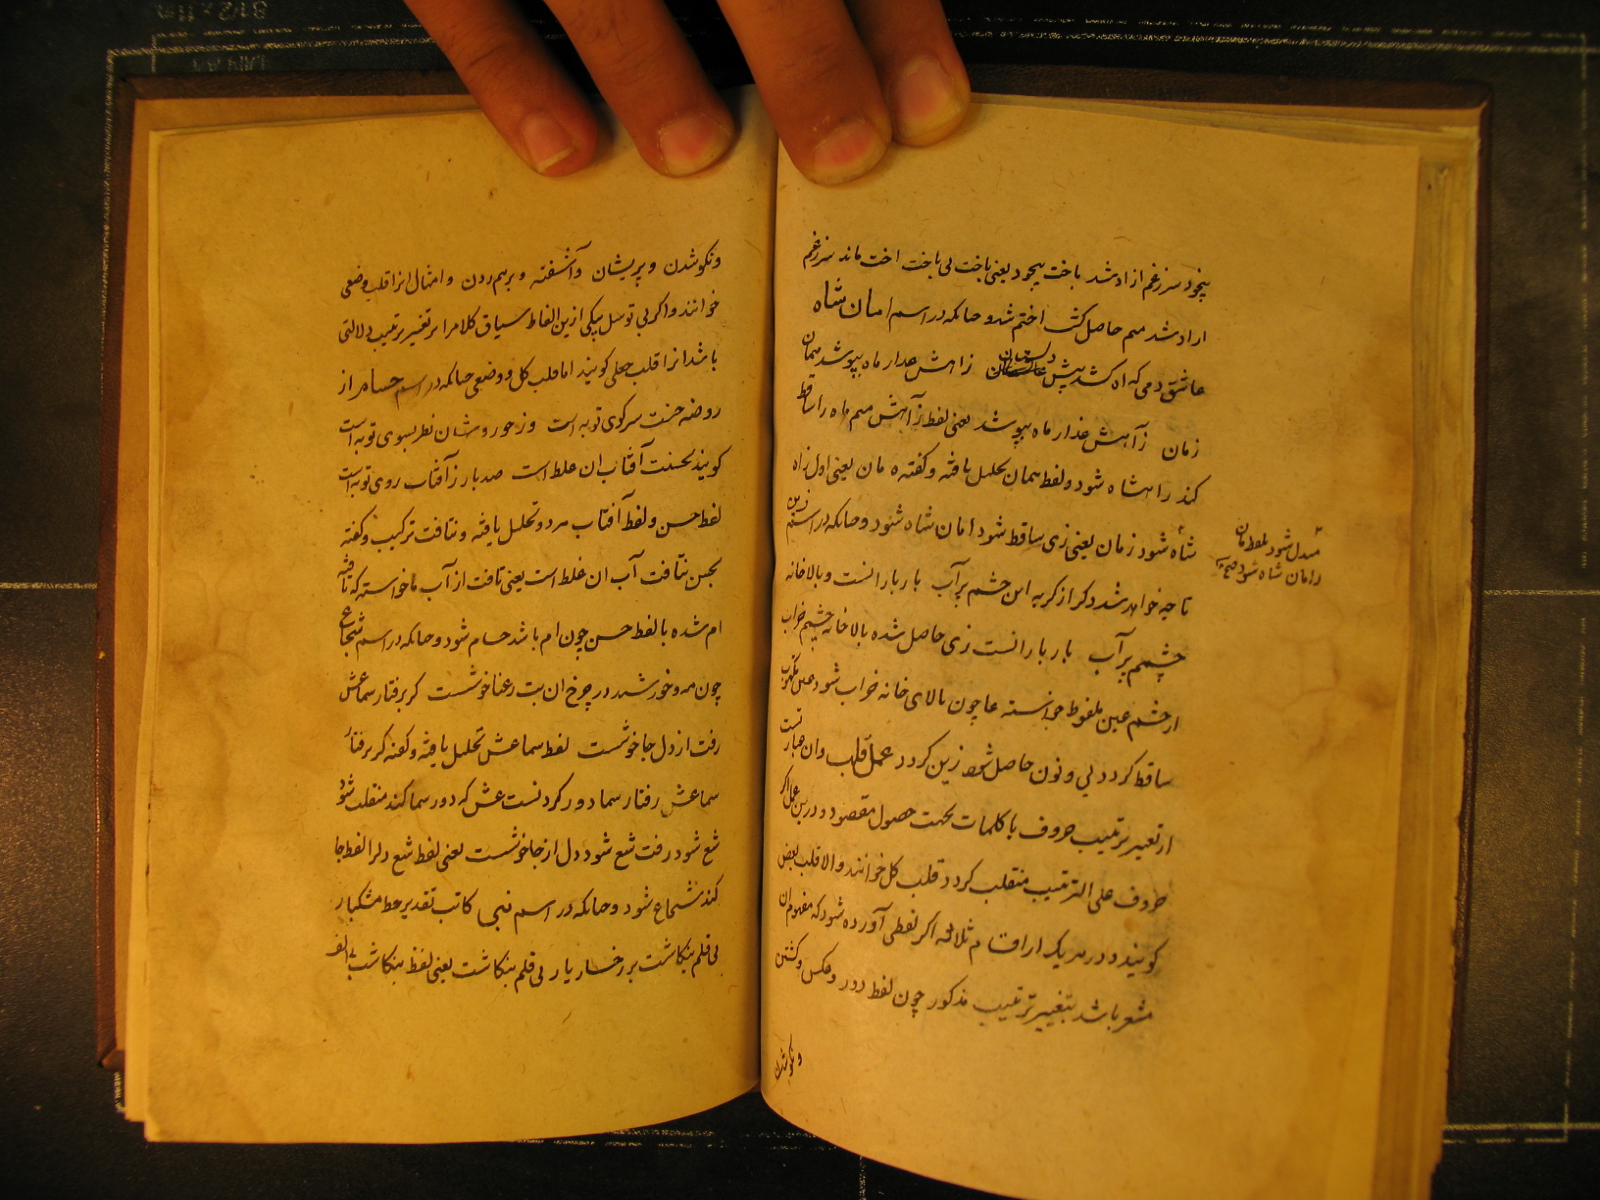 بیخود سر زغم ازاد شد باخت بیخود یعنی باخت بی باخت اخت ماند سر زغم
ازاد شد میم حاصل کشت اختم شد و حانکه در اسم امان شاه
عاشق دمی که اه کشد پیش دلستان زاهش عذار ماه بپوشد همان
زمان زآهش عذار ماه بپوشد یعنی لفظ زآهش میم ماه را ساقط
کند راهشاه شود و لفظ همان تحلیل یافته و کفته ه مان یعنی اول زاه
شاه شود زمان یعنی زی ساقط شود امان شاه شود و حانکه در اسم زین
مبدل شود بلفظ مان
و امان شاه شود صح
تا چه خواهد شد دکر از کریه این چشم پرآب بار بارانست و بالاخانه
چشمم پرآب بار بارانست زی حاصل شده بالاخانه چشم خراب
از چشم عین ملفوظ خواسته عا چون بالای خانه خراب شود عین مکتوب
ساقط کردد یی و نون حاصل شود زین کردد عمل قلب و ان عبارتست
از تغییر ترتیب حروف یا کلمات بجهت حصول مقصود و درین عمل اکر
حروف علی الترتیب منقلب کردد قلب کل خوانند و الا قلب بعض
کویند و در هر یک از اقسام ثلاثه اکر لفظی آورده شود که مفهوم ان
مشعر باشد بتغییر ترتیب مذکور چون لفظ دور و عکس و کشتن
و نکو شدن
و نکوشدن و پریشان و آشفته و برهم زدن و امثال انرا قلب وضعی
خوانند و اکر بی توسل بیکی ازین الفاظ سیاق کلام را بر تغییر ترتیب دلالتی
باشد انرا قلب جعلی کویند اما قلب کل و وضعی حانکه در اسم حسام از
روضه جنت سر کوی تو به است وز حور وشان نظر بسوی تو به است
کویند بحسنت آفتاب ان غلط است صد بار ز آفتاب روی تو به است
لفظ حسن و لفظ آفتاب مرد و تحلیل یافته و نتافت ترکیب و کفته
بحسن نتافت آب ان غلط است یعنی تافت از آب ما خواسته که تافته
ام شده با لفظ حسن چون ام باشد حسام شود و حانکه در اسم شجاع
چون مه و خورشید در چرخ ان بت رعنا خوشست کر برفتار سماعش
رفت از دل جا خوشست لفظ سماعش تحلیل یافته و کفته کر برفتار
سماعش رفتار سما دور کردنست عش که دور سما کند منقلب شود
شع شود رفت شع شود دل از جا خوشست یعنی لفظ شع دل را لفظ جا
کند شجاع شود و حانکه در اسم نبی کاتب تقدیر خط مشکبار
بی قلم بنکاشت بر رخسار یار بی قلم بنکاشت یعنی لفظ بنکاشت الف